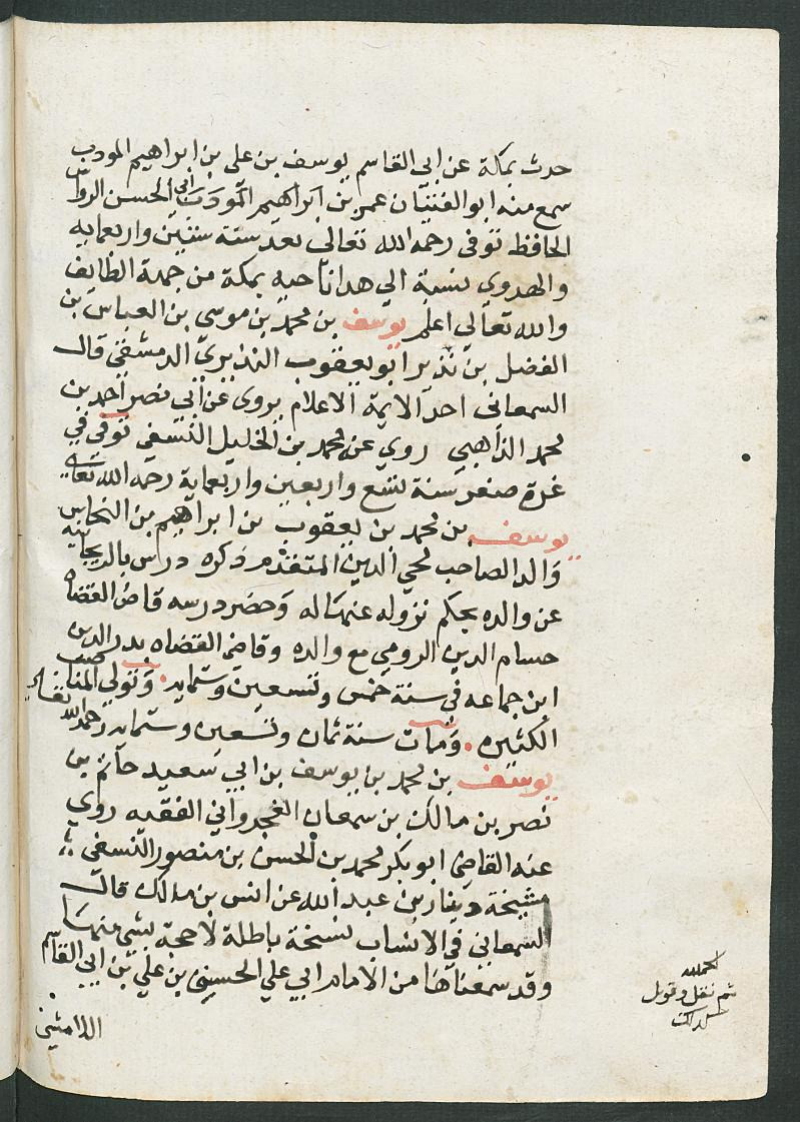 حدث بمكة عن ابى القاسم يوسف بن على بن ابراهيم المودب
سمع منه ابو الفتيان عمر بن ابراهيم المودب ابى الحسن الروا
الحافظ توفى رحمه الله تعالى بعد سنة ستين واربعمايه
والهدوي نسبة الي هدا ناحيه بمكة من جهة الطايف
والله تعالي اعلم يوسف بن محمد بن موسى بن العباس بن
الفضل بن نذير ابو يعقوب النذيري الدمشقى قال
السمعانى احد الايمة الاعلام يروى عن ابي نصر احمد بن
محمد الذاهبي روي عن محمد بن الخليل النسفي توفى في
غرة صفر سنة تسع واربعين واربعماية رحمه الله تعالى
يوسف بن محمد بن يعقوب بن ابراهيم بن النحاس
والد الصاحب محي الدين المتقدم ذكره درس بالريحانيه
عن والده بحكم نزوله عنها له وحضر درسه قاضى القضاه
حسام الدين الرومي مع والده وقاضي القضاه بدر الدين
ابن جماعه في سنة خمس وتسعين وستمايه وتولي المناصب
الكثيره ومات سنة ثمان وتسعين وستمايه رحمه الله تعالى
يوسف بن محمد بن يوسف بن ابي سعيد حاتم بن
نصر بن مالك بن سمعان الغجدواني الفقيه روي
عنه القاضي ابو بكر محمد بن الحسن بن منصور النسفي
مشيخة دينار بن عبد الله عن انس بن مالك قال
السمعاني في الانساب نسخة باطلة لا حجة بشي منها
وقد سمعناها من الامام ابي علي الحسين بن علي بن ابي القاسم
اللامشى
الحمد لله
ثم نقل وقوبل